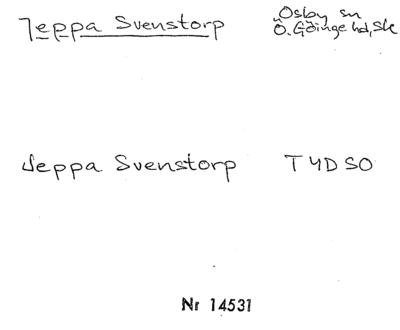 Jeppa Svenstorp
Osby sn
Ö. Göinge hd, Sk
Jeppa Svenstorp
TYDSO
Nr 14531